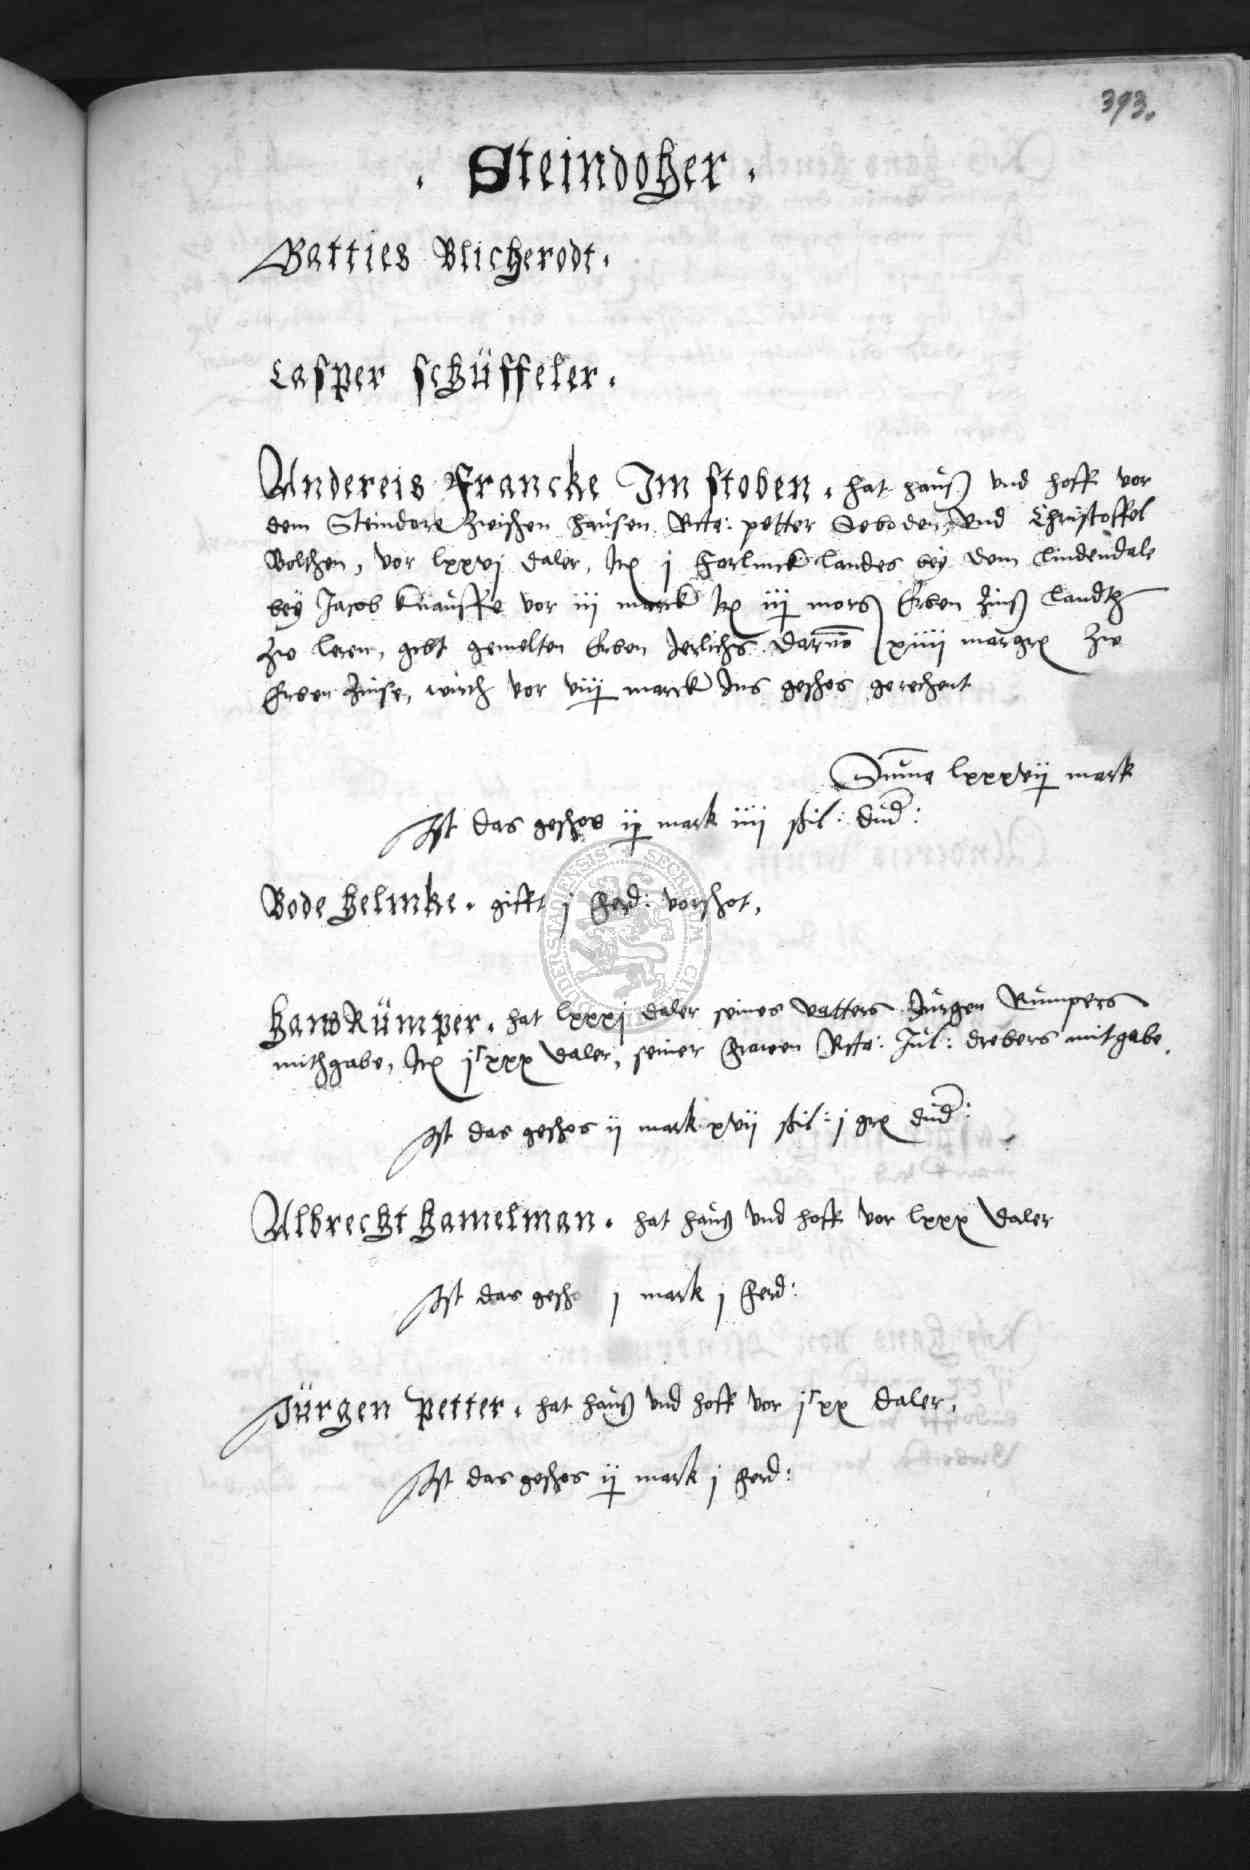 393.
. Steindoher .
Batties Blicherodt.
Casper schüffeler.
Andereis Francke Im stoben. hat hauß und hoff vor
dem Steindore zwischen hansen Rcte: petter Seboden und Christoffel
Bolthen, vor lxxvj daler, Itē j forlinck landes bey dem lindendale
bey Jacob knauffe vor iii marck Itē iij morg Erben Zinß landtz
zw leren, gibt gemelten Erben Jerlichs darvō xiiii margrē zw
Erben Zinse, wirth vor viij marck Ins geschos gerechent
Sūme lxxxvij mark
Ist das geschos ij mark iiii schil: dud:
Bode helmke. gifft j ferd: vorschot,
hans Rümper. hat lxxxj daler seines vatters Jurgen Rumpers
mithgabe, Itē jᶜxxx daler, seiner frawen Rcte: Jul: drebers mitgabe,
Ist das geschos ij mark xvij schil: j grē dud:
Albrecht hamelman. hat hauß vnd hoff vor lxxx daler
Ist das gescho j mark j ferd:
Jürgen Petter. hat hauß vnd hoff vor jᶜxx daler,
Ist das geschos ij mark j ferd:
SECRETUM